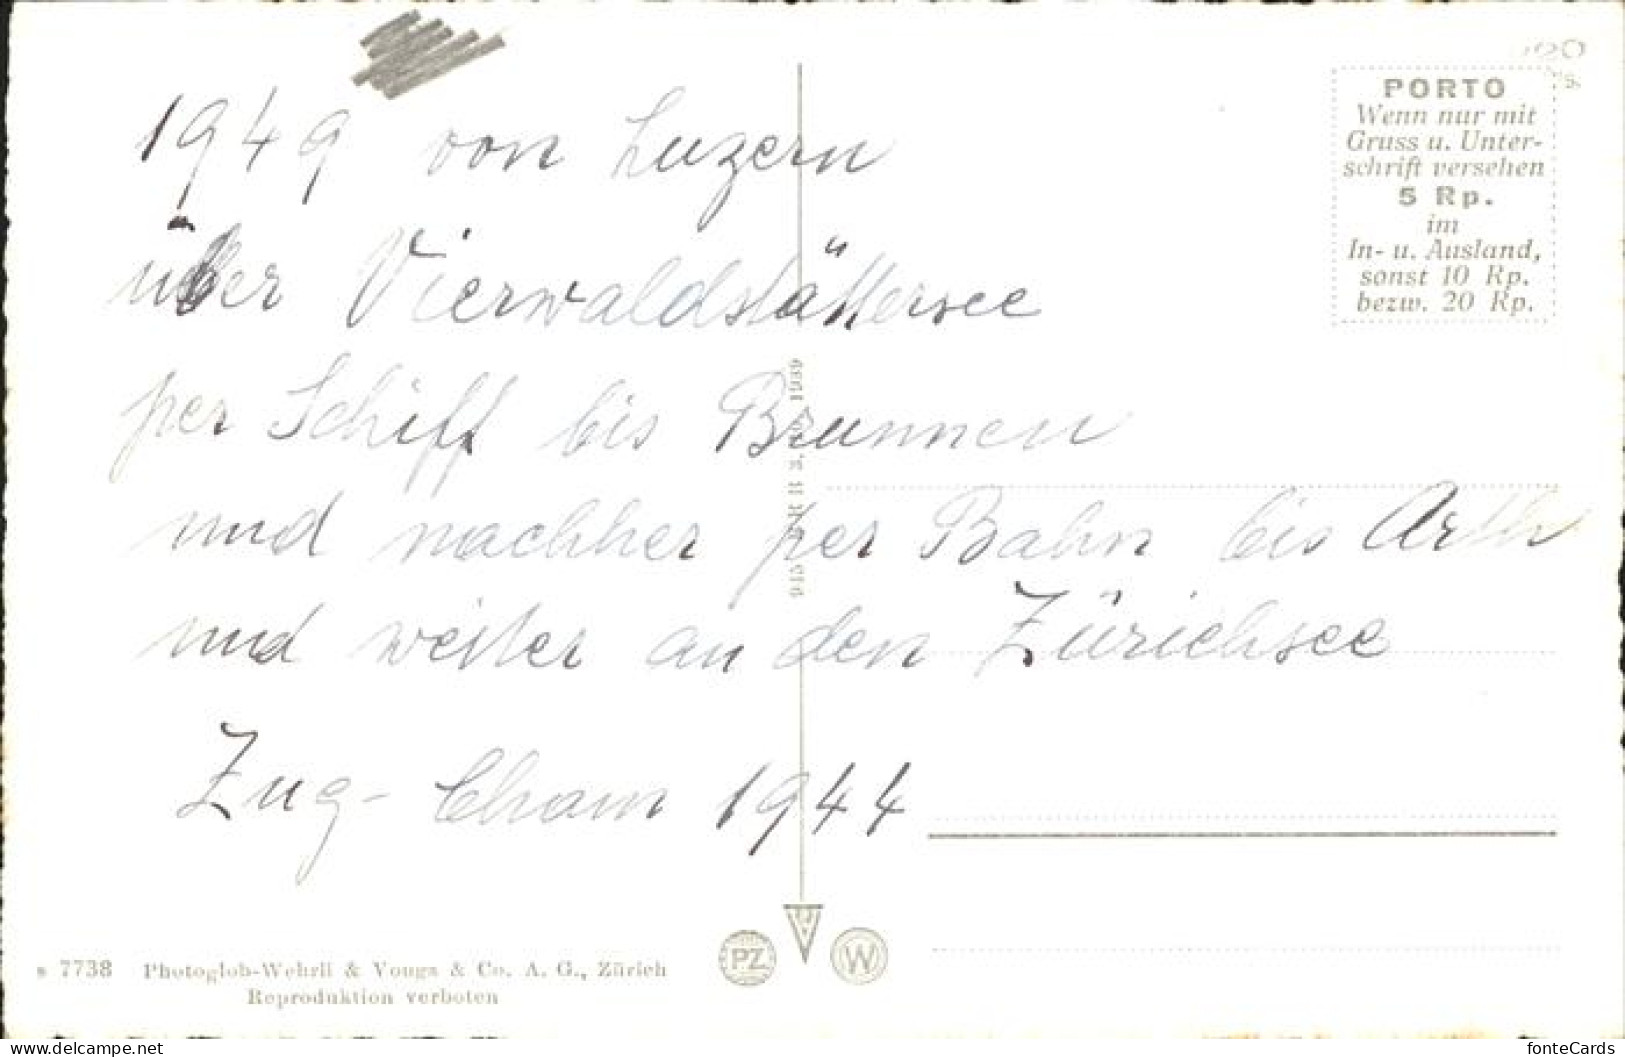 1949 von Luzern
über Vierwaldstättersee
per Schiff bis Brunnen
und nachher per Bahn bis Arth
und weiter an den Zürichsee
Zug - Cham 1944
PORTO
Wenn nur mit
Gruss u. Unter-
schrift versehen
5 Rp.
im
In- u. Ausland,
sonst 10 Rp.
bezw. 20 Rp.
PZ
W
s 7738 Photoglob-Wehrli & Vouga & Co. A. G., Zürich
Reproduktion verboten
delcampe.net
fonteCards